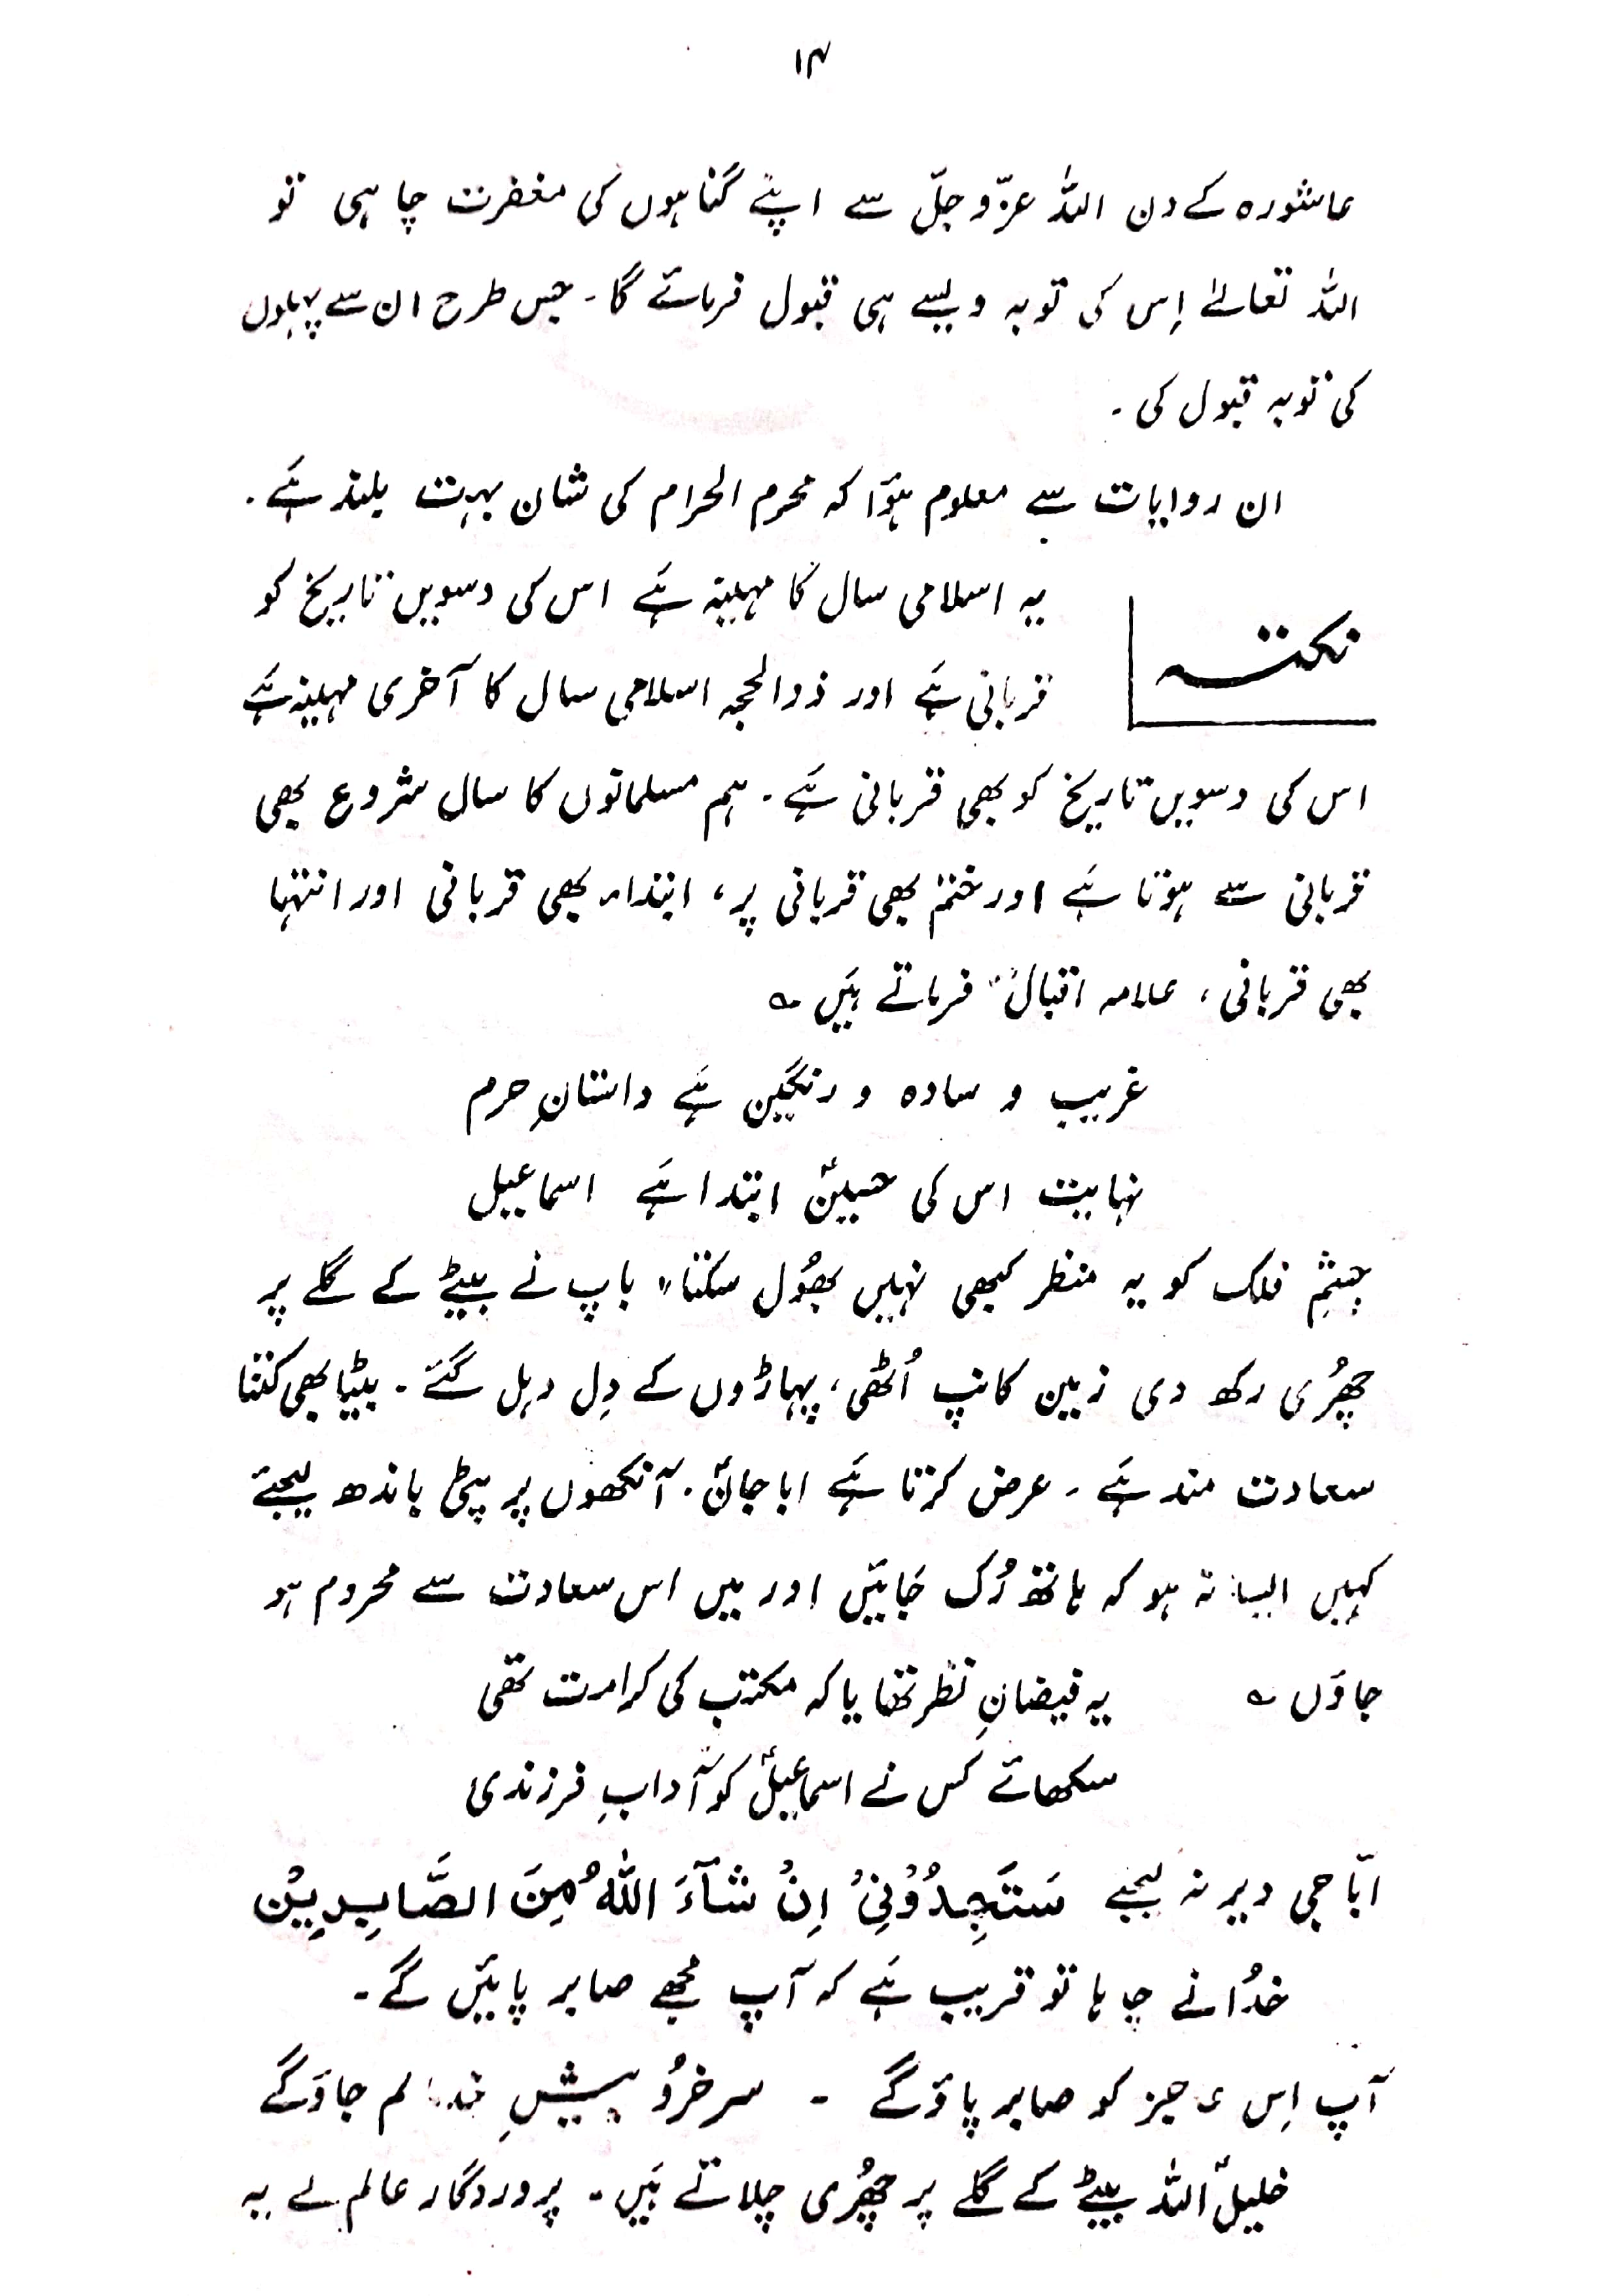 ۱۴
عاشورہ کے دن اللہ عزّوجلّ سے اپنے گناہوں کی مغفرت چاہی تو
اللہ تعالےٰ اِس کی توبہ ویسے ہی قبول فرمائے گا۔ جس طرح ان سے پہلوں
کی توبہ قبول کی ۔
ان روایات سے معلوم ہؤا کہ محرم الحرام کی شان بہت بلند ہَے ۔
نکتہ
یہ اسلامی سال کا مہینہ ہَے اس کی دسویں تاریخ کو
قربانی ہَے اور ذوالحجہ اسلامی سال کا آخری مہینہ ہَے
اس کی دسویں تاریخ کو بھی قربانی ہَے ۔ ہم مسلمانوں کا سال شروع بھی
قربانی سے ہوتا ہَے اور ختم بھی قربانی پر، ابتداء بھی قربانی اور انتہا
بھی قربانی ، علامہ اقبالؒ فرماتے ہَیں ؎
غریب و سادہ و رنگین ہَے داستانِ حرم
نہایت اس کی حسینؓ ابتدا ہَے اسماعیل
چشمِ فلک کو یہ منظر کبھی نہیں بھُول سکتا، باپ نے بیٹے کے گلے پر
چھُری رکھ دی زمین کانپ اُٹھی، پہاڑوں کے دِل دہل گئے ۔ بیٹا بھی کتنا
سعادت مند ہَے ۔ عرض کرتا ہَے ابا جان ۔ آنکھوں پر پٹی باندھ لیجئے
کہیں ایسا نہ ہو کہ ہاتھ رُک جَائیں اور میں اس سعادت سے محروم ہو
جاؤں ؎ یہ فیضانِ نظر تھا یا کہ مکتب کی کرامت تھی
سکھائے کس نے اسماعیلؑ کو آدابِ فرزندی
ابّا جی دیر نہ لیجئے سَتَجِدُوْنِیْ اِنْ شَآءَ اللّٰہُ مِنَ الصَّابِرِیْن
خدُا نے چاہا تو قریب ہَے کہ آپ مجھے صابر پائیں گے ۔
آپ اِس چیز کو صابر پاؤگے ۔ سرخرُو پیشِ جاؤگے
خلیلؑ اللہ بیٹے کے گلے پر چھُری چلاتے ہَیں ۔ پروردگار عالم یہ